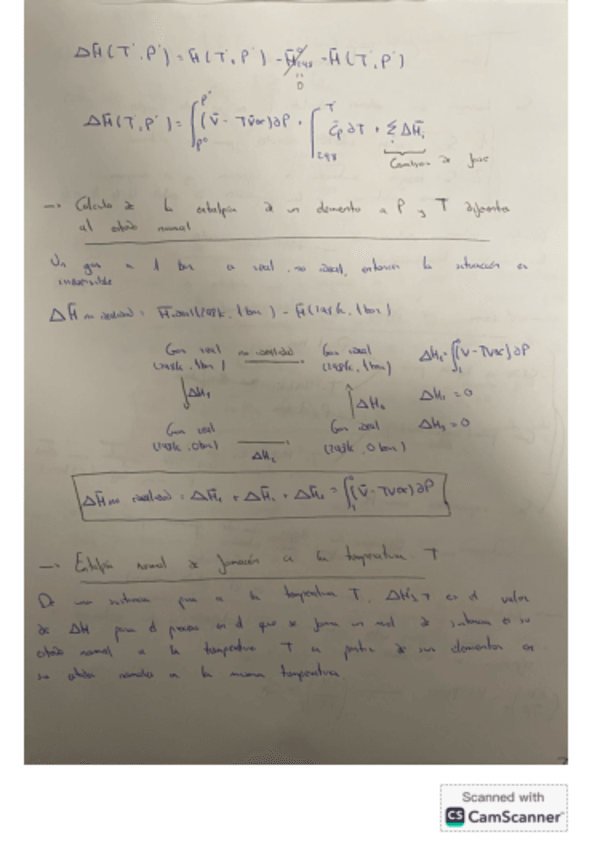 ΔH̄(T', P') = H̄(T', P') - H̄°298 = H̄(T', P')
0
ΔH̄(T', P') = ∫ P' P° (V̄ - TV̄α)∂P + ∫ T' 298 C̄p ∂T + Σ ΔH̄i
Cambios de fase
→ Calculo de la entalpia de un elemento a P y T diferentes
al estado normal
Un gas a 1 bar es real, no ideal, entonces la situacion es
ΔH̄ no idealidad = H̄ real (298k, 1bar) - H̄ (298k, 1bar)
Gas real no idealidad Gas ideal ΔH1 = ∫(V - TVα)∂P
(298k, 1bar) (298k, 1bar)
ΔH1 ΔH3 ΔH2 = 0
Gas real Gas ideal ΔH3 = 0
(298k, 0bar) ΔH2 (298k, 0bar)
ΔH̄ no idealidad = ΔH̄1 + ΔH̄2 + ΔH̄3 = ∫ 0 1 (V̄ - TVα)∂P
→ Entalpia normal de formación a la temperatura T
De una sustancia pura a la temperatura T, ΔH°f,T es el valor
de ΔH para el proceso en el que se forma un mol de sustancia en su
estado normal a la temperatura T a partir de sus elementos en
su estado normales a la misma temperatura
Scanned with
CS CamScanner